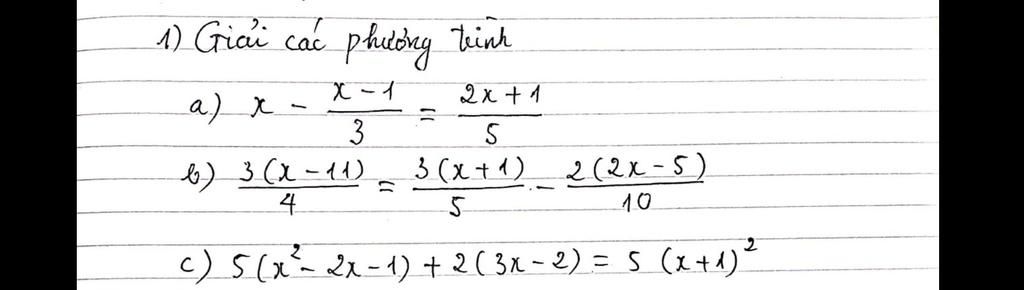 1) Giải các phương trình
a) x - (x-1)/3 = (2x+1)/5
b) 3(x-11)/4 = 3(x+1)/5 - 2(2x-5)/10
c) 5(x²-2x-1) + 2(3x-2) = 5 (x+1)²